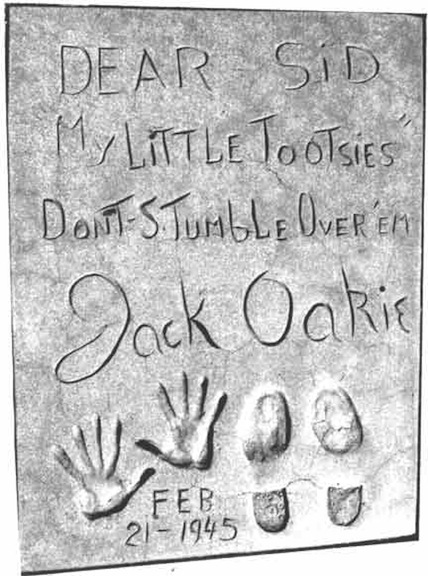 DEAR SiD
"My LiTTLE TooTsiES"
DoNT-S.TUMbLE OVER 'EM
Jack Oakie
FEB
21-1945